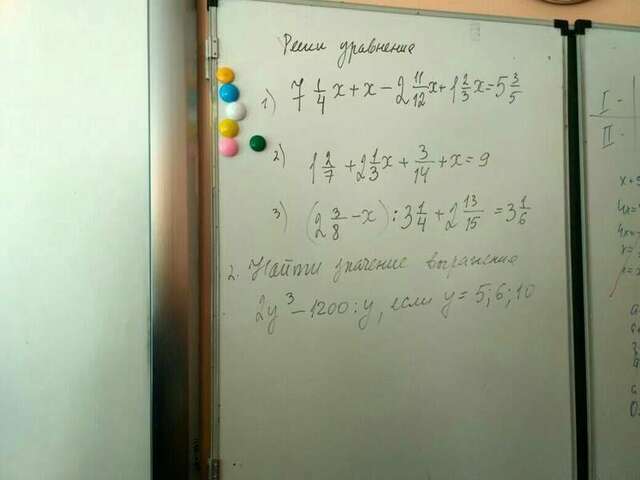 Реши уравнение
1) 7 1/4 x + x - 2 11/12 x + 1 2/3 x = 5 3/5
2) 1 2/7 + 2 1/3 x + 3/14 + x = 9
3) (2 3/8 - x) : 3 1/4 + 2 13/15 = 3 1/6
2. Найти значение выражения
2y³ - 1200 : y, если y = 5; 6; 10
I -
II -